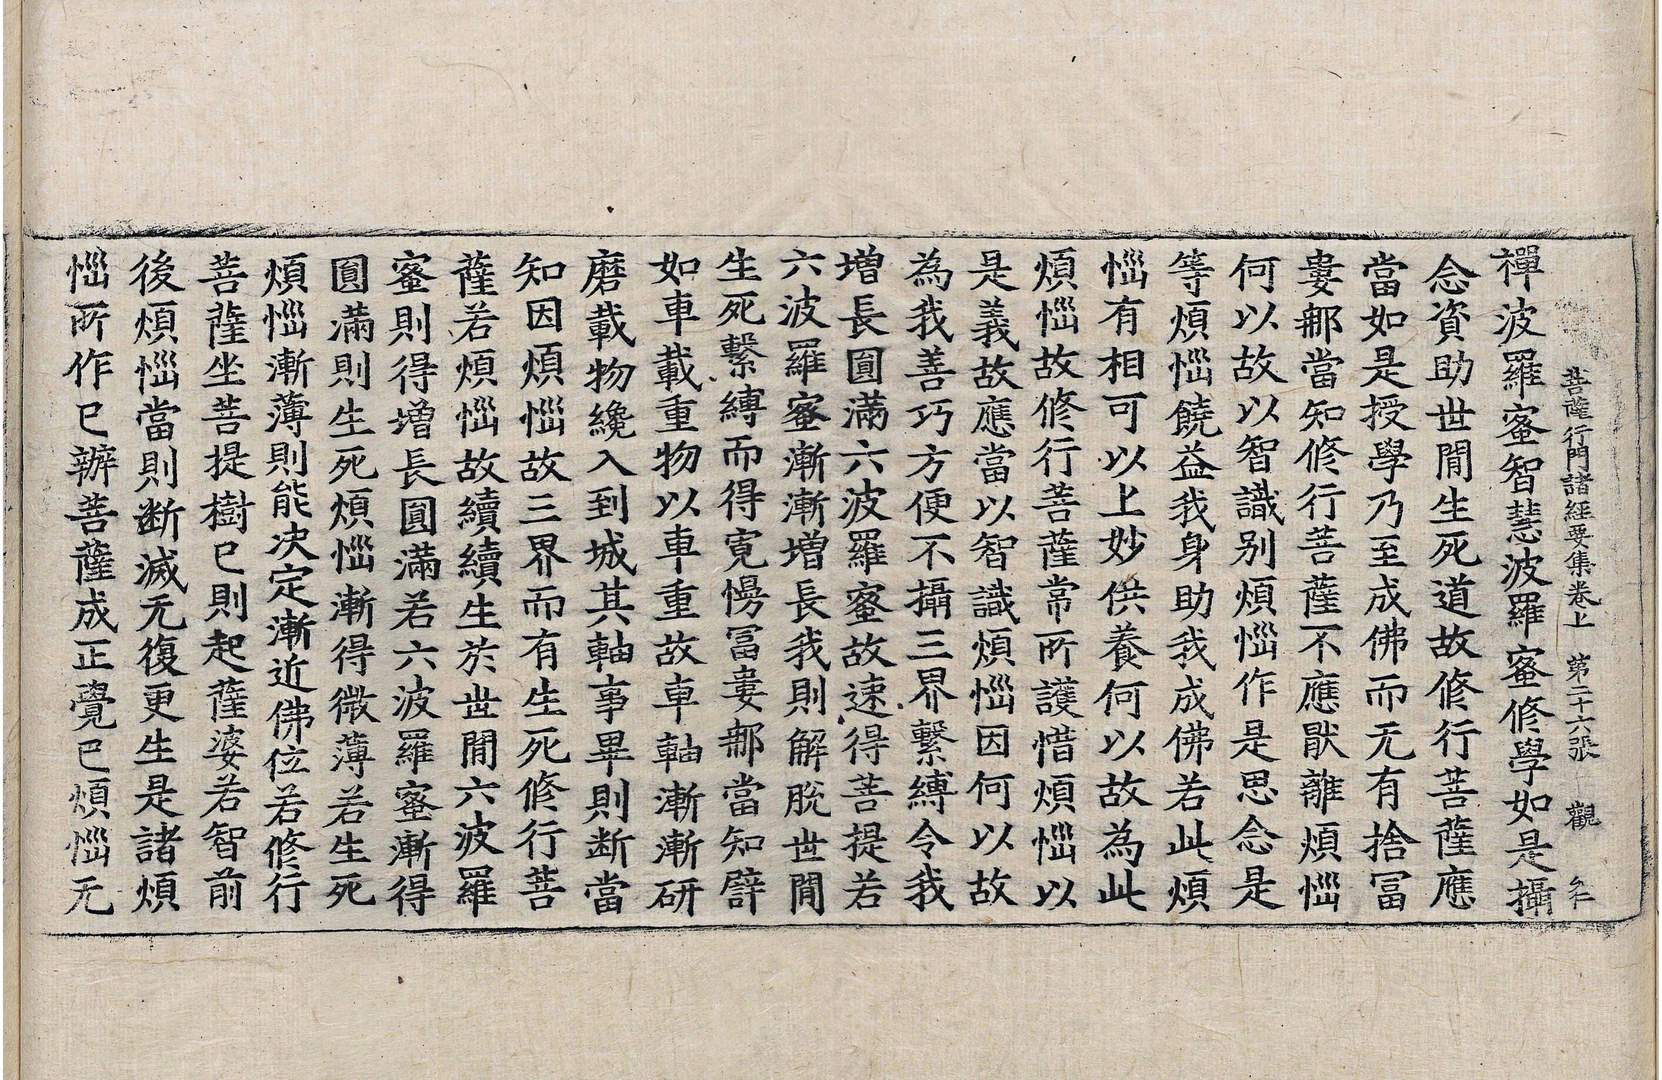 菩薩行門諸經要集卷上 第二十六張 觀
禪波羅蜜智慧波羅蜜修學如是攝
念資助世間生死道故修行菩薩應
當如是授學乃至成佛而无有捨冨
婁那當知修行菩薩不應猒離煩惱
何以故以智識別煩惱作是思念是
等煩惱饒益我身助我成佛若此煩
惱有相可以上妙供養何以故為此
煩惱故修行菩薩常所護惜煩惱以
是義故應當以智識煩惱因何以故
為我善巧方便不攝三界繫縛令我
增長圓滿六波羅蜜故速得菩提若
六波羅蜜漸漸增長我則解脫世間
生死繫縛而得寬慢冨婁那當知譬
如車載重物以車重故車軸漸漸研
磨載物纔入到城其軸事畢則斷當
知因煩惱故三界而有生死修行菩
薩若煩惱故續續生於世間六波羅
蜜則得增長圓滿若六波羅蜜漸得
圓滿則生死煩惱漸得微薄若生死
煩惱漸薄則能决定漸近佛位若修行
菩薩坐菩提樹已則起薩婆若智前
後煩惱當則斷滅无復更生是諸煩
惱所作已辦菩薩成正覺已煩惱无